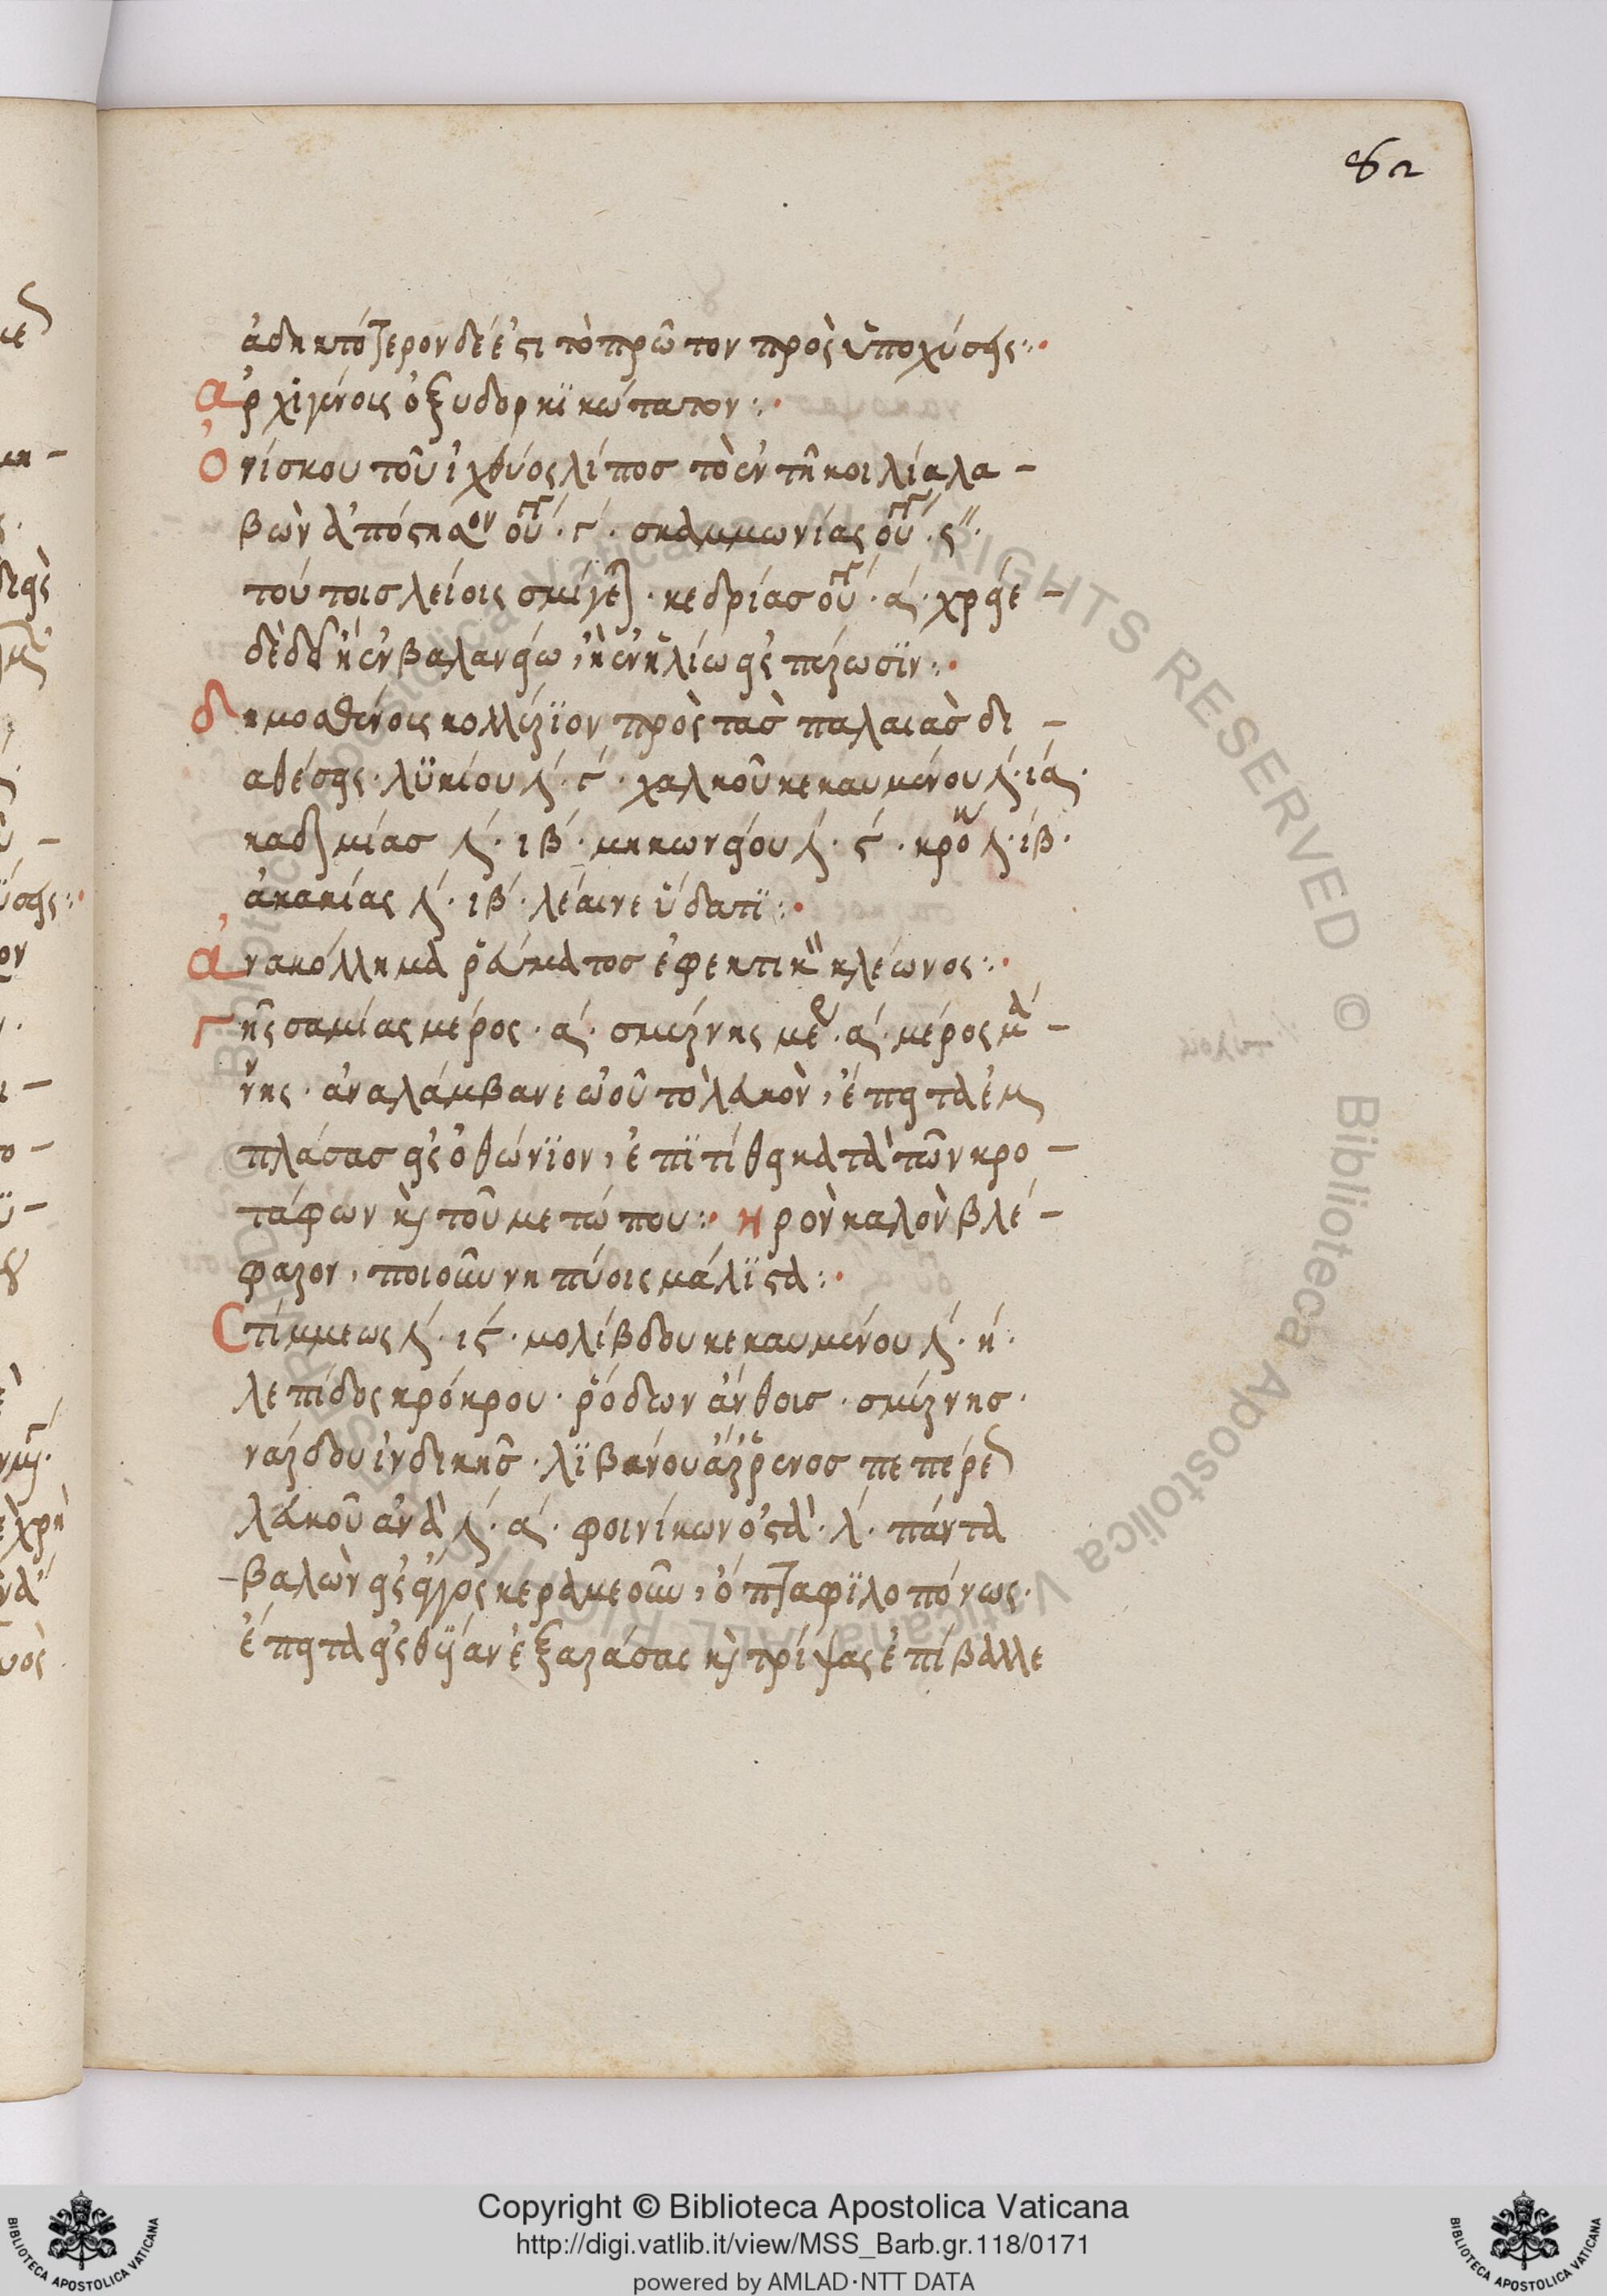 82
ἀδηκτότερον δέ ἐστι τὸ πρῶτον πρὸς ὑποχύσεις :·
αρχιγένοις ὀξυδορκϊκώτατον :·
ὀνίσκου τοῦ ἰχθύος λίπος τὸ ἐν τῆ κοιλία λα -
βὼν ἀπόστηαον οὐγ · γ · σκαμμωνίας οὐγ · ς ·
τούτοις λείοις σμίγε · κεδρίας οὐγ · α · χρίε -
δὲ ἢ ἐν βαλανείω, ἢ ἐν ἡλίω εἰς περζωσϊν :·
δημοσθένοις κολλύρϊον πρὸς τασ παλαιὰσ δι -
αθέσεις · λϋκίου · ϛ · χαλκοῦ κεκαυμένου · ια ·
καδμίας · ιβ · μηκωνείου · ϛ · κρό · ιβ ·
ἀκακίας · ιβ · λέαινε ὑδατϊ :·
ἀνακόλλημα ῥεύματος ἐφεκτικ κλέωνος :·
γῆς σαμίας μέρος · α · σμύρνης με · α · μέρος μά -
νης · ἀναλάμβανε ὠοῦ τὸ λευκὸν, ἔπειτα ἐμ
πλάσας εἰς ὀθώνϊον, ἐπϊτίθει κατὰ τῶν κρο -
τάφων καὶ τοῦ μετώπου :· ηρον καλὸν βλέ -
φαρον, ποιοῦν νηπύοις μάλϊστα :·
Στίμμεως · ις · μολέβδου κεκαυμένου · η ·
λεπίδος κρόκρου · ῥόδων ἄνθοις · σμύρνης ·
νάρδου ἰνδικῆς · λϊβάνου ἄρρενος πεπέρε
λευκοῦ ἀνὰ · α · φοινίκων ὀστᾶ · λ · πάντα
βαλὼν εἰς ἄγγος κεραμεοῦν, ὄπτα φϊλοπόνως ·
ἔπειτα εἰς θϋίαν ἐξαράσας καὶ τρίψας ἐπίβαλλε
Copyright © Biblioteca Apostolica Vaticana
http://digi.vatlib.it/view/MSS_Barb.gr.118/0171
powered by AMLAD·NTT DATA